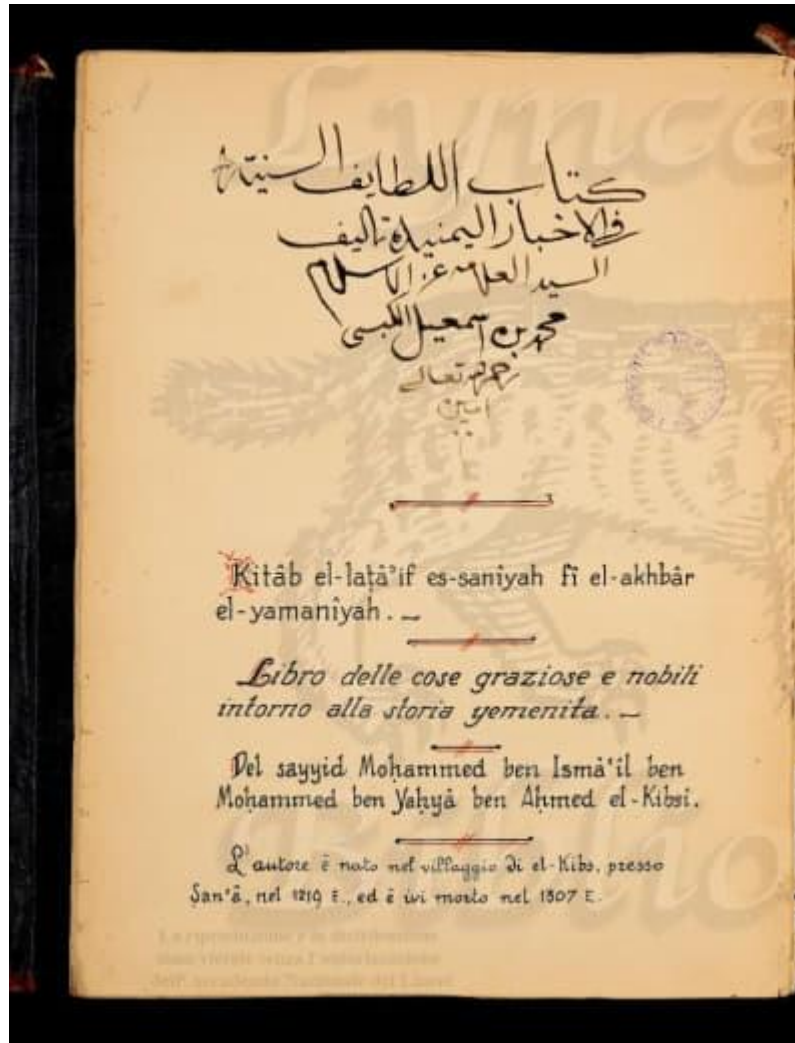 كتاب اللطايف السنية
في الاخبار اليمنية تاليف
السيد العلامة عز الاسلام
محمد بن اسمعيل الكبسي
رحمه الله تعالى
امين
Kitâb el-laṭâ'if es-sanîyah fî el-akhbâr
el-yamanîyah.
Libro delle cose graziose e nobili
intorno alla storia yemenita.
Del sayyid Moḥammed ben Ismâ'îl ben
Moḥammed ben Yaḥyâ ben Aḥmed el-Kibsî.
L'autore è nato nel villaggio di el-Kibs, presso
Ṣan'â, nel 1219 E., ed è ivi morto nel 1307 E.
Lynce
La riproduzione e la distribuzione
sono vietate senza l'autorizzazione
dell' Accademia Nazionale dei Lincei